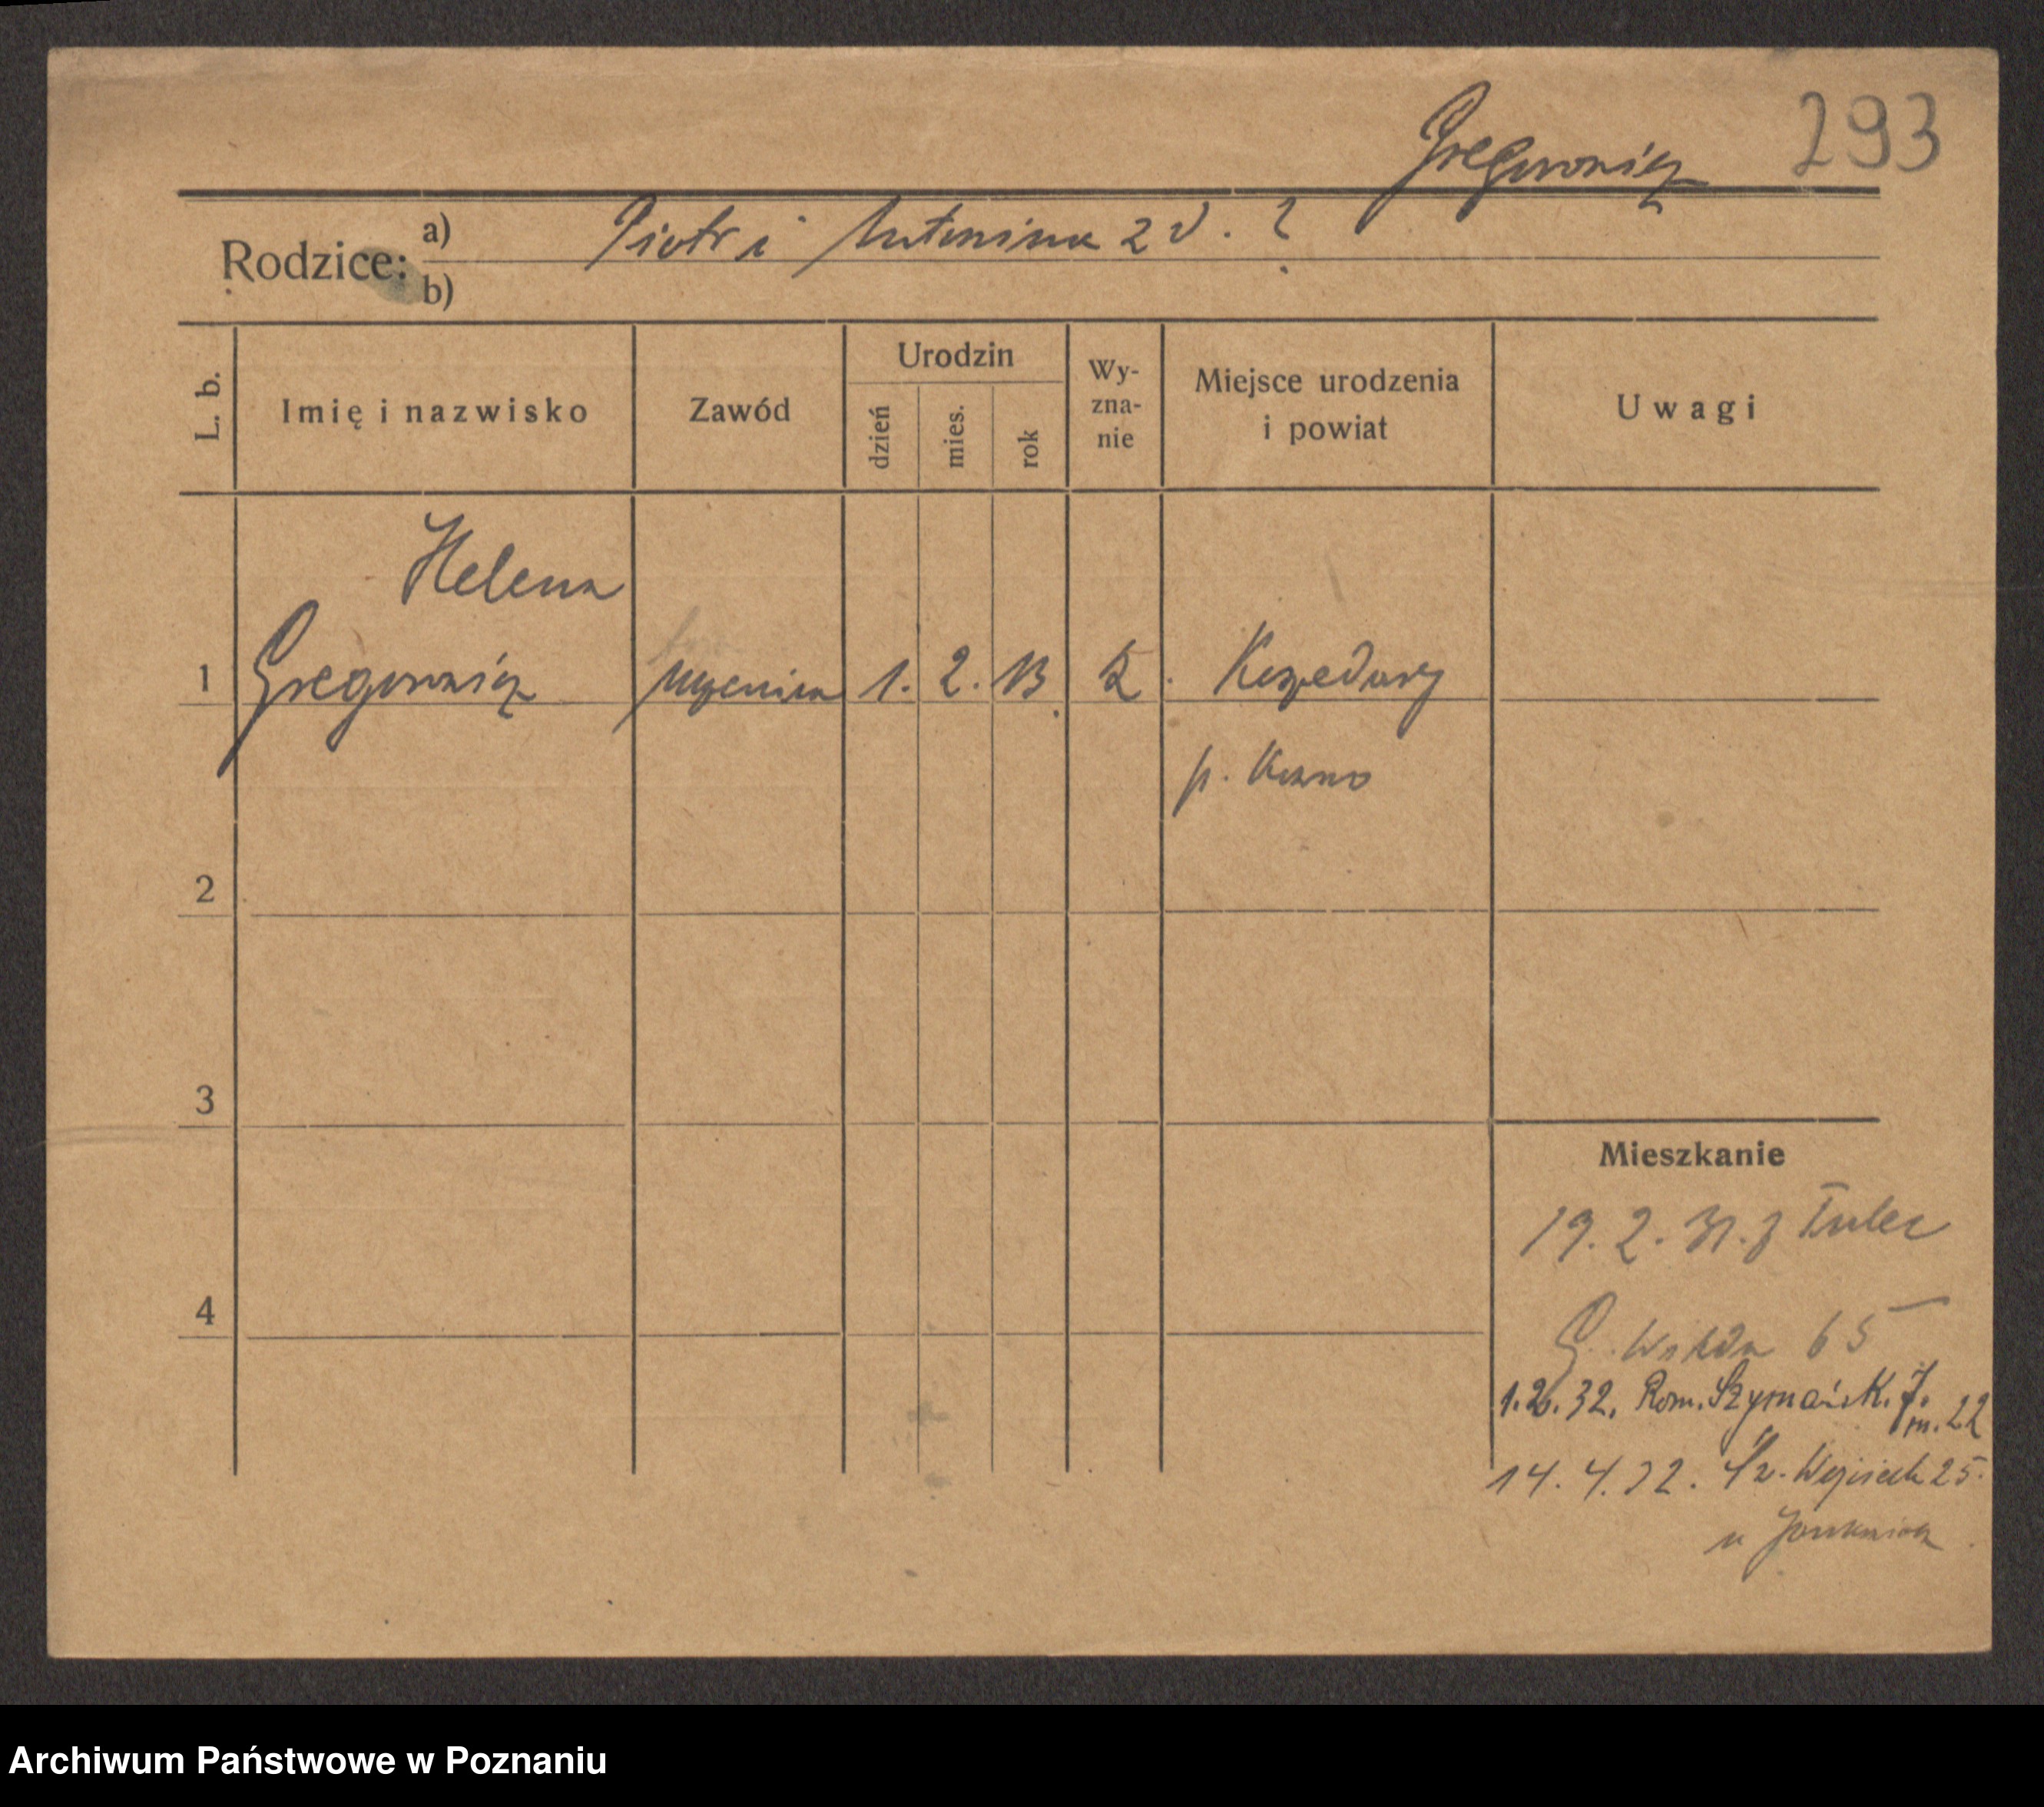 Gregorowicz 293
Rodzice: a) Piotr i Antonina z d. ?
b)
L. b. Imię i nazwisko Zawód Urodzin dzień mies. rok Wyznanie Miejsce urodzenia i powiat Uwagi
Helena
1 Gregorowicz 1. 2. 13
p.
2
3
Mieszkanie
19. 2. 31. z Tulec
4
G. Wilda 65
1.2.32. Rom. Szymańsk. 7. m. 22
14. 4. 32. Św. Wojciech 25.
u
Archiwum Państwowe w Poznaniu